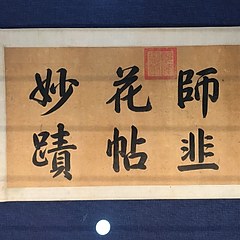 師韭
花帖
妙蹟